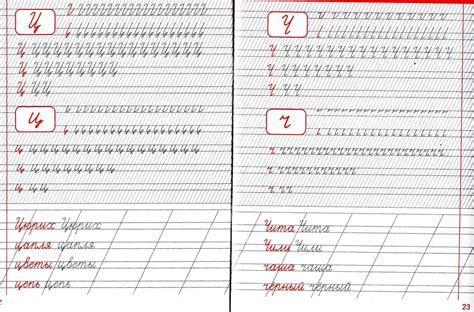 Ц
Ц Ц Ц Ц Ц Ц Ц Ц Ц Ц Ц Ц Ц
Ц Ц Ц Ц Ц Ц Ц Ц Ц
Ц Ц Ц
ц
ц ц ц ц ц ц ц ц ц ц ц ц ц ц ц
ц ц ц ц ц ц ц ц ц
ц ц ц
Цюрих Цюрих
цапля цапля
цветы цветы
цепь цепь
Ч
Ч Ч Ч Ч Ч Ч Ч Ч Ч Ч Ч Ч Ч Ч
Ч Ч Ч Ч Ч Ч Ч Ч
Ч Ч Ч
ч
ч ч ч ч ч ч ч ч ч ч ч ч ч ч ч ч ч
ч ч ч ч ч ч ч ч ч ч ч
ч ч ч
Чита Чита
Чили Чили
чаша чаша
чёрный чёрный
23